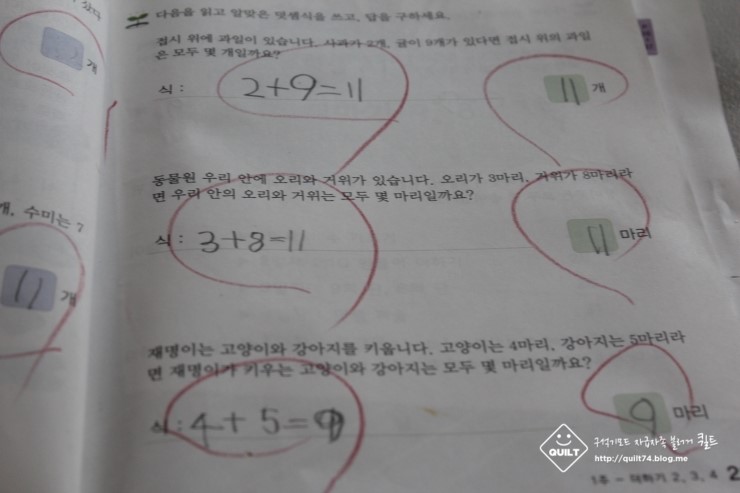 다음을 읽고 알맞은 덧셈식을 쓰고, 답을 구하세요.
접시 위에 과일이 있습니다. 사과가 2개, 귤이 9개가 있다면 접시 위의 과일
은 모두 몇 개일까요?
식 : 2+9=11
11 개
동물원 우리 안에 오리와 거위가 있습니다. 오리가 3마리, 거위가 8마리라
면 우리 안의 오리와 거위는 모두 몇 마리일까요?
식 : 3+8=11
11 마리
재명이는 고양이와 강아지를 키웁니다. 고양이는 4마리, 강아지는 5마리라
면 재명이가 키우는 고양이와 강아지는 모두 몇 마리일까요?
식 : 4+5=9
9 마리
1주 - 더하기 2, 3, 4 2
개
개, 수미는 7
11 개
QUILT
퀼트
http://quilt74.blog.me